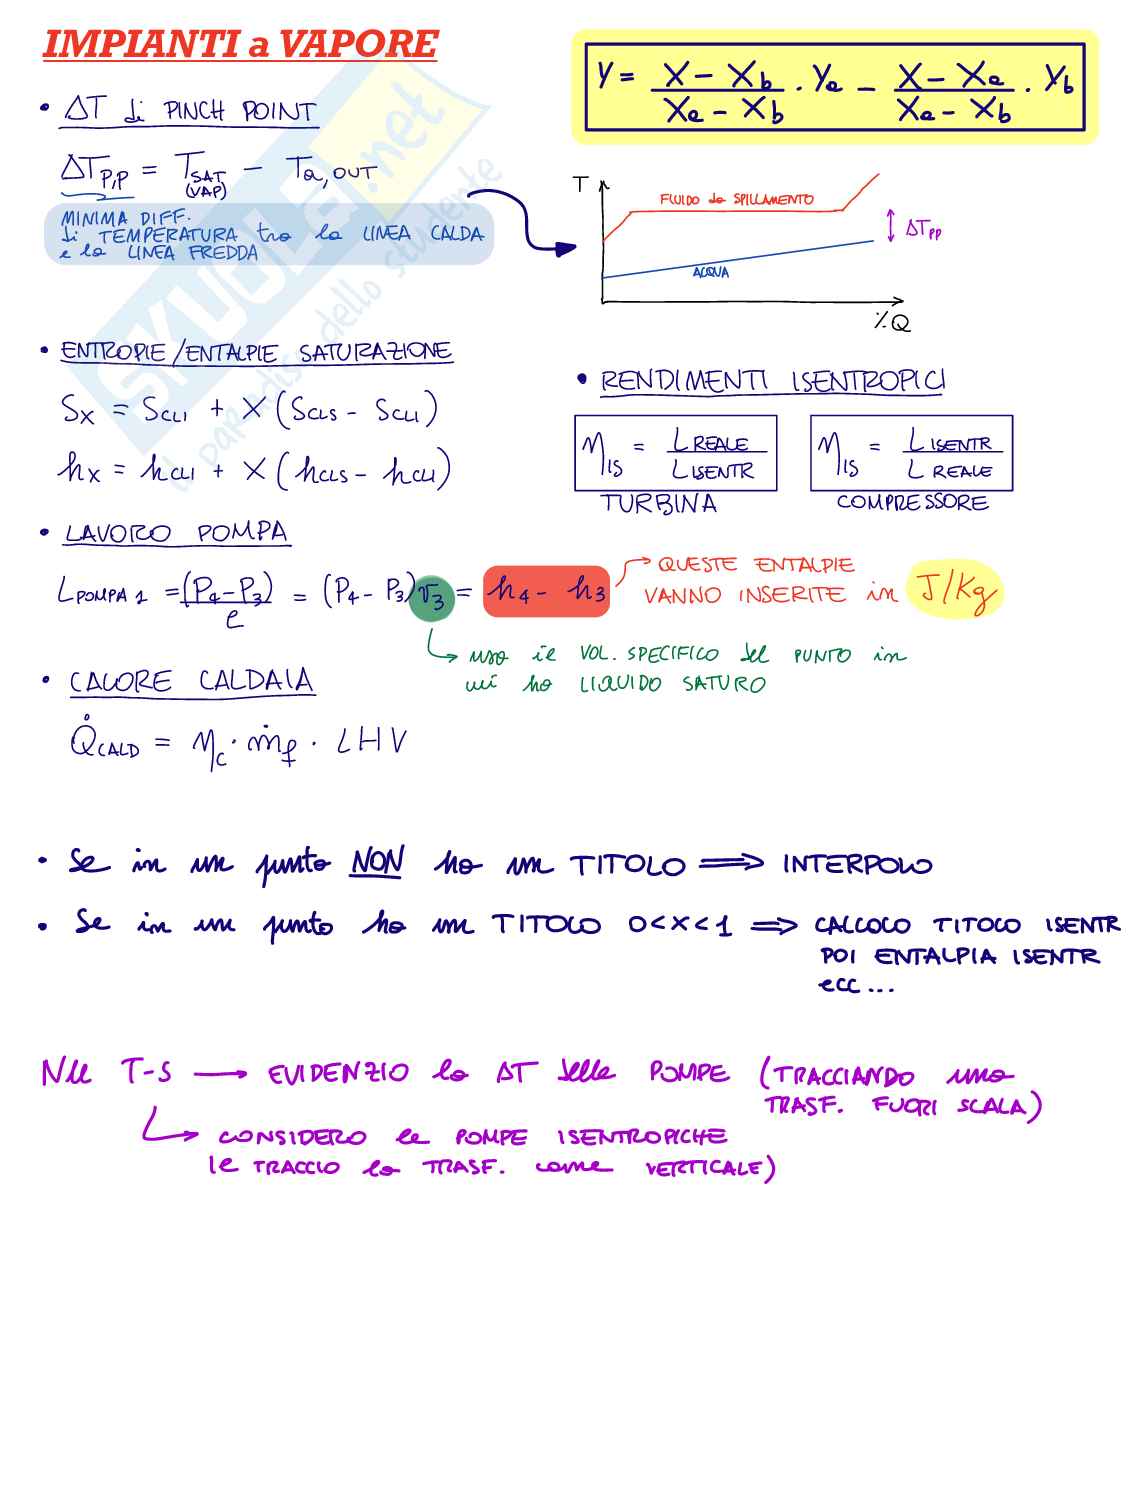 IMPIANTI a VAPORE
y = (x - x_b)/(x_a - x_b) · y_a - (x - x_a)/(x_a - x_b) · y_b
• ΔT di PINCH POINT
ΔT_P,P = T_SAT (VAP) - T_a,OUT
MINIMA DIFF.
di TEMPERATURA tra la LINEA CALDA
e la LINEA FREDDA
T
FLUIDO da SPILLAMENTO
ΔT_PP
ACQUA
% Q
SKUOLA.net
il paradiso dello studente
• ENTROPIE/ENTALPIE SATURAZIONE
S_X = S_CLI + X (S_CLS - S_CLI)
h_X = h_CLI + X (h_CLS - h_CLI)
• RENDIMENTI ISENTROPICI
η_IS = L REALE / L ISENTR
TURBINA
η_IS = L ISENTR / L REALE
COMPRESSORE
• LAVORO POMPA
L_POMPA 1 = (P_4 - P_3)/ρ = (P_4 - P_3) v_3 = h_4 - h_3
QUESTE ENTALPIE
VANNO INSERITE in J/Kg
uso il VOL. SPECIFICO del PUNTO in
cui ho LIQUIDO SATURO
• CALORE CALDAIA
Q̇_CALD = η_c · ṁ_f · LHV
• Se in un punto NON ho un TITOLO ⟹ INTERPOLO
• Se in un punto ho un TITOLO 0<x<1 ⟹ CALCOLO TITOLO ISENTR
POI ENTALPIA ISENTR
ecc...
Nel T-S → EVIDENZIO la ΔT delle POMPE (TRACCIANDO una
TRASF. FUORI SCALA)
CONSIDERO le POMPE ISENTROPICHE
(e TRACCIO la TRASF. come VERTICALE)